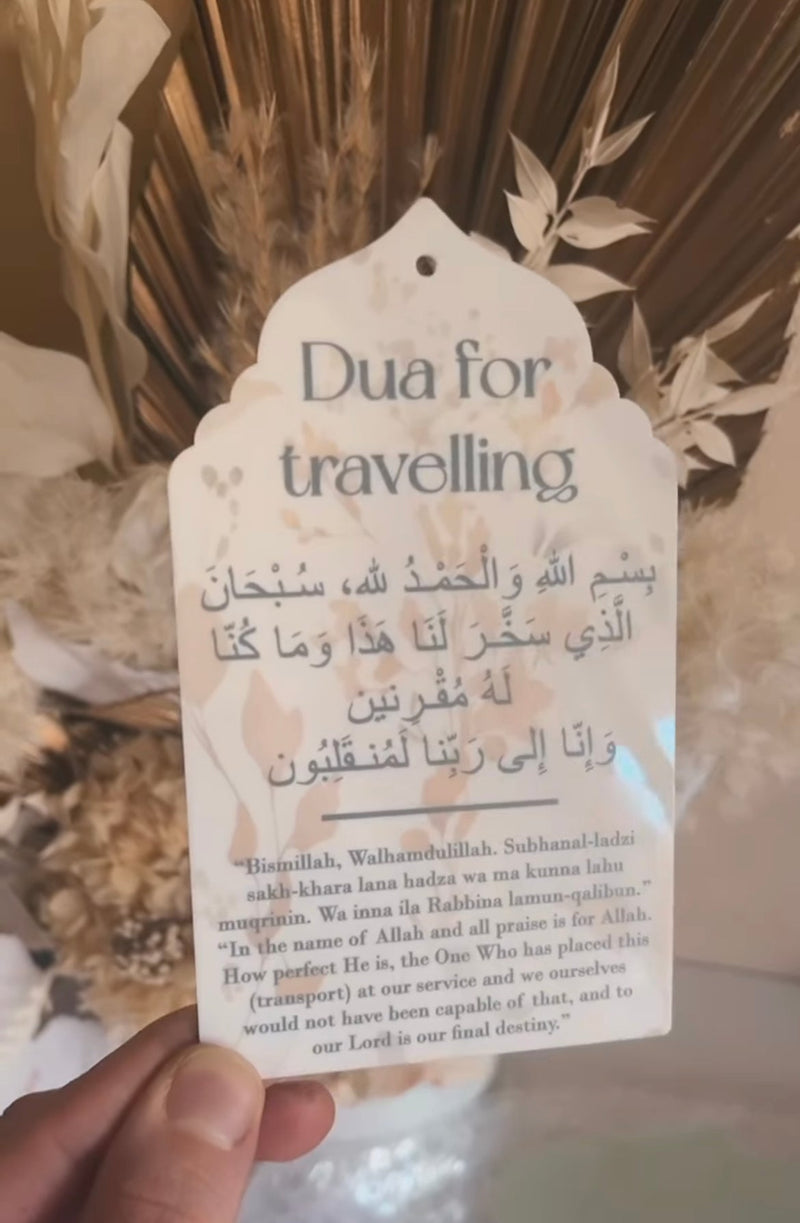 Dua for
travelling
بِسْمِ اللهِ وَالْحَمْدُ لله، سُبْحَانَ
الَّذِي سَخَّرَ لَنَا هَذَا وَمَا كُنّا
لَهُ مُقْرِنين
وَإِنّا إِلى رَبِّنا لَمُنقَلِبُون
“Bismillah, Walhamdulillah. Subhanal-ladzi
sakh-khara lana hadza wa ma kunna lahu
muqrinin. Wa inna ila Rabbina lamun-qalibun.”
“In the name of Allah and all praise is for Allah.
How perfect He is, the One Who has placed this
(transport) at our service and we ourselves
would not have been capable of that, and to
our Lord is our final destiny.”